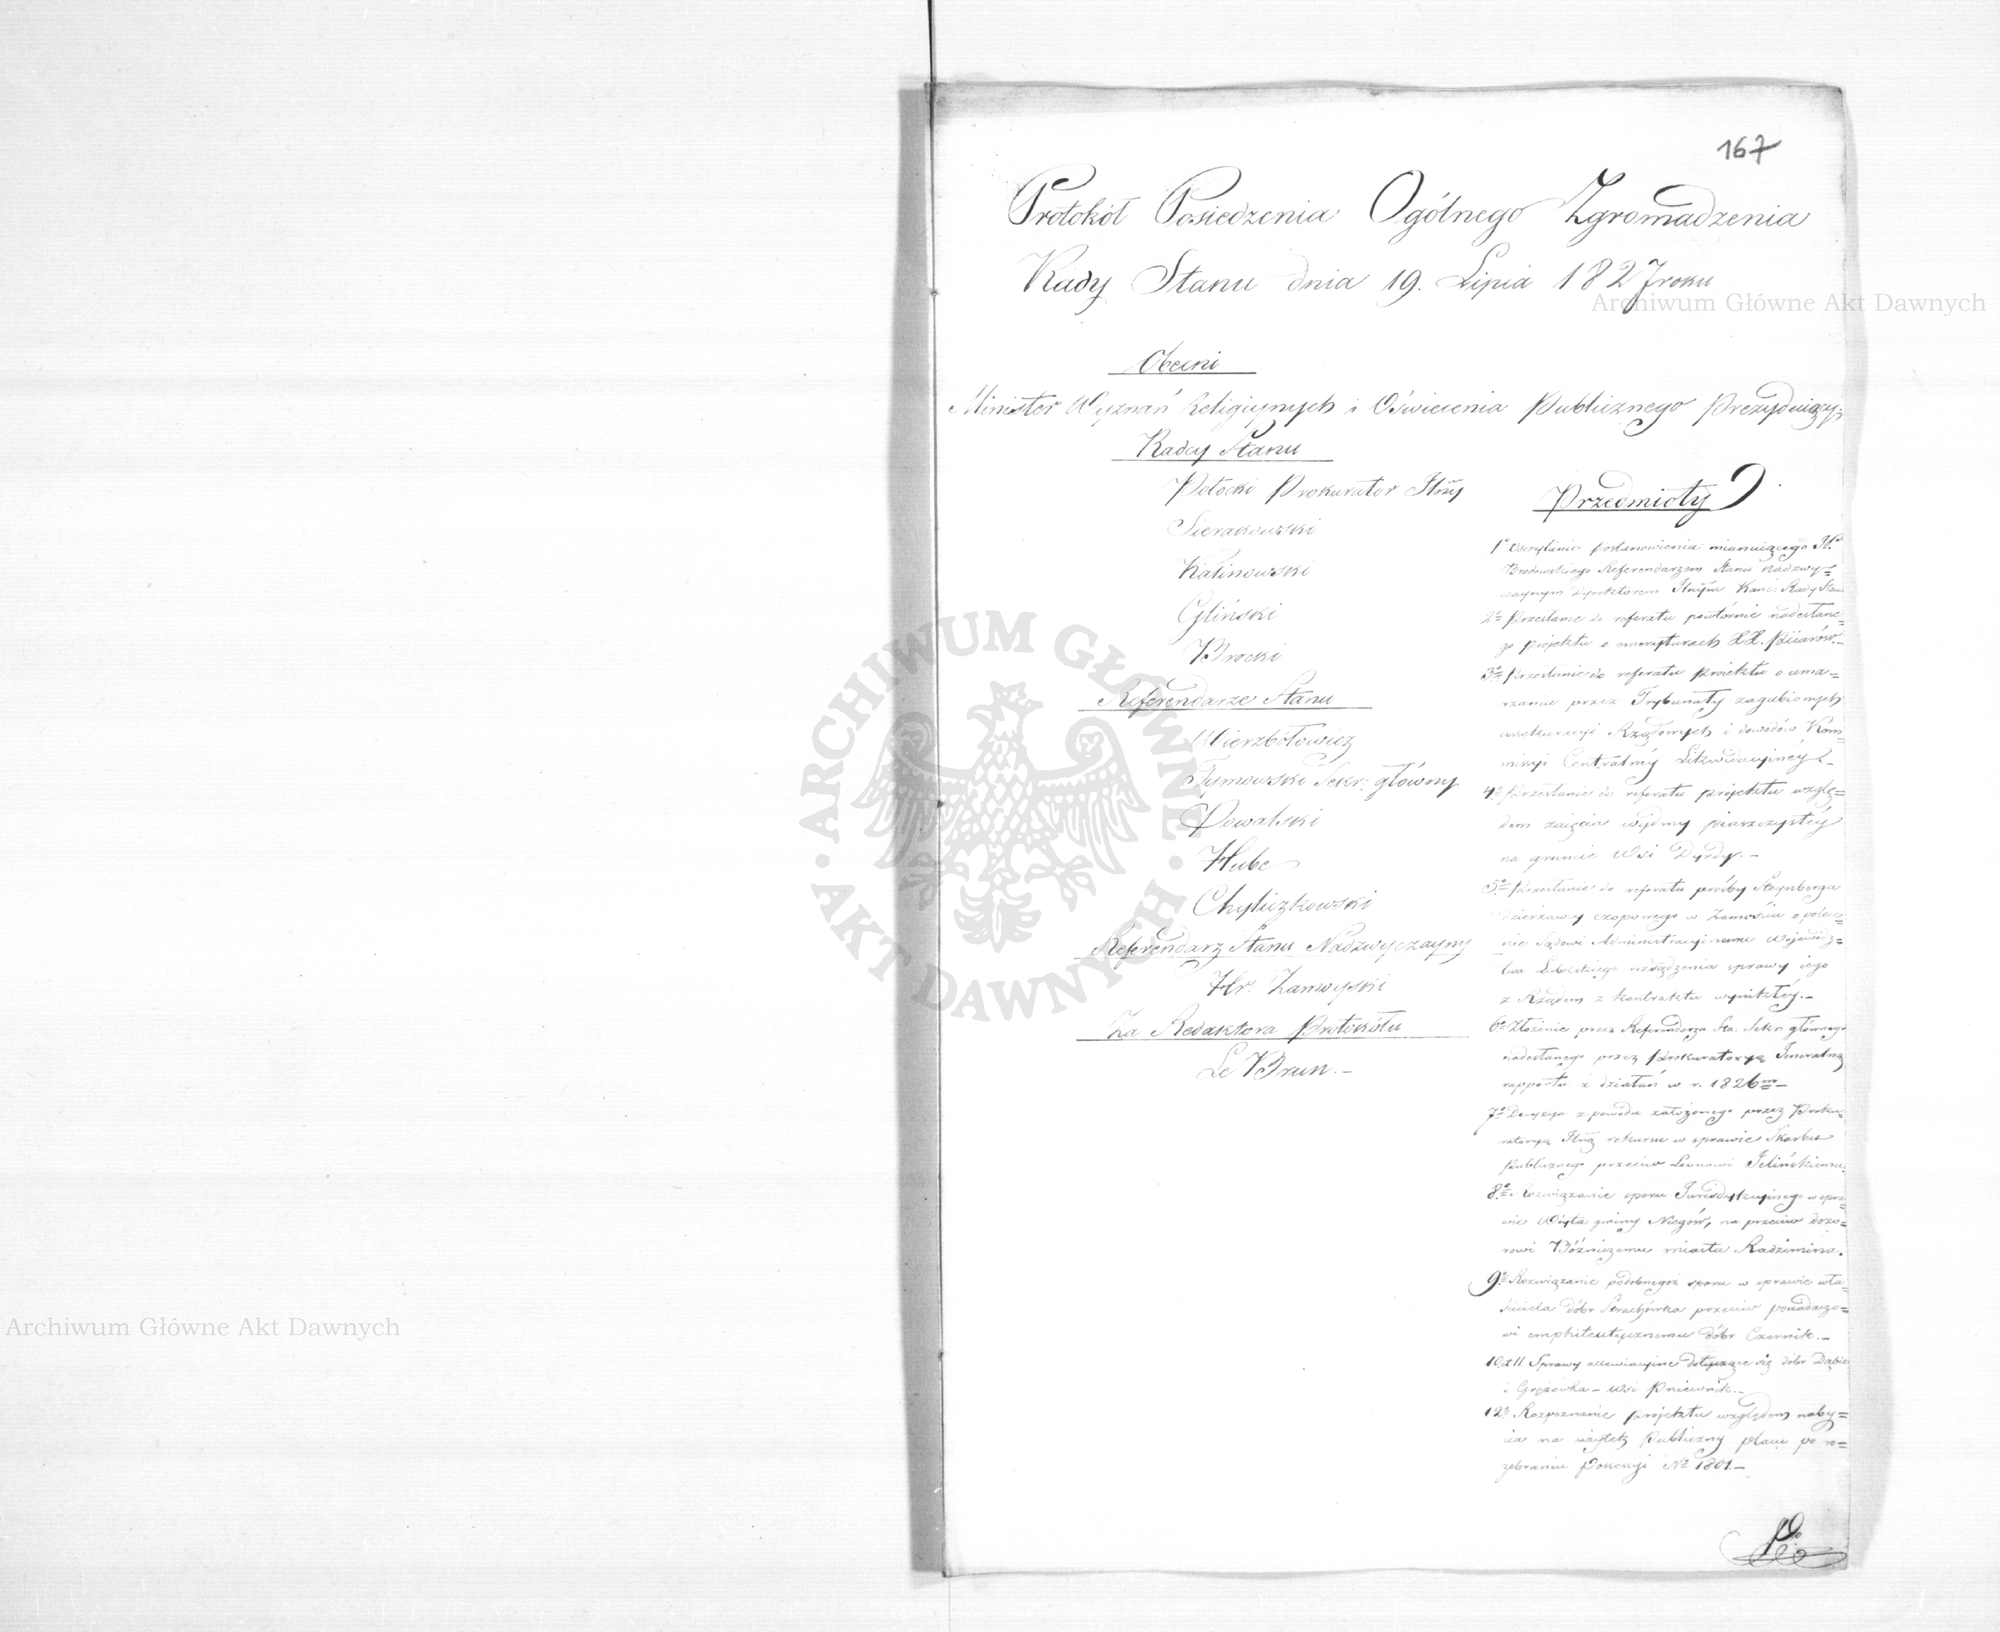 167
Protokół Posiedzenia Ogólnego Zgromadzenia
Rady Stanu dnia 19. Lipca 1827 roku
Obecni
Minister Wyznań Religijnych i Oświecenia Publicznego Prezydujący
Radcy Stanu
Potocki Prokurator
Sierakowski
Kalinowski
Gliński
Brocki
Referendarze Stanu
Wierzbołowicz
Tymowski Sekr: główny
Powalski
Hube
Chyliczkowski
Referendarz Stanu Nadzwyczayny
Hr. Zamoyski
Za Redaktora Protokółu
Le Brun.-
Przedmioty
1° Odczytanie postanowienia mianuiącego
Brodowskiego Referendarzem Stanu Nadzwy=
czaynym Dyrektorem Kanc: Rady Stanu
2° Przesłanie do referatu powtórnie nadesłane=
go projektu o emeryturach XX. Piiarów.-
3° Przesłanie do referatu projektu o uma=
rzaniu przez Trybunały zagubionych
Rządowych i dowodów Kom=
missyi Centralney Likwidacyiney.-
4° Przesłanie do referatu projektu wzglę=
dem zaięcia wydmy piaszczystey
na gruncie Wsi Dyrdy.-
5° Przesłanie do referatu prośby Staynberga
dzierżawcy czopowego w Zamościu o polece=
nie Sądowi Administracyinemu Wojewódz=
twa Lubelskiego rozsądzenia sprawy iego
z Rządem z kontraktu wynikłey.-
6° Złożenie przez Referendarza Sta: Sekr: głównego
nadesłanego przez Prokuratoryą Jeneralną
rapportu z działań w r. 1826m-
7° Decyzya z powodu założonego przez Proku=
ratoryą rekursu w sprawie Skarbu
Publicznego przeciw Leonowi Jelińskiemu.
8° Rozwiązanie sporu Jurisdykcyinego w spra=
wie Wóyta gminy Niegów, na przeciw dozo=
rowi Bóżniczemu miasta Radzimina.
9° Rozwiązanie podobnegoż sporu w sprawie wła=
ściciela dóbr Strachówka przeciw posiadaczo=
wi emphiteutycznemu dóbr Czernik.-
10. et 11 Sprawy allewiacyine dotyczące się dóbr Dąbie
i Gryżówka - wsi Pniewnik.-
12° Rozpoznanie projektu względem naby=
cia na użytek Publiczny placu po ro=
zebraniu Possessyi No 1801.-